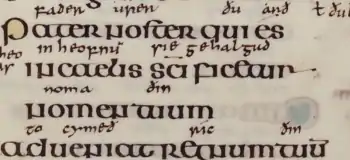 fader uren ðu arð ł ðu
Pater noster qui es
in heofnum sie gehalgud
in caelis scificetur
noma ðin
nomen tuum
to cymeð ric ðin
adueniat regnum tuū